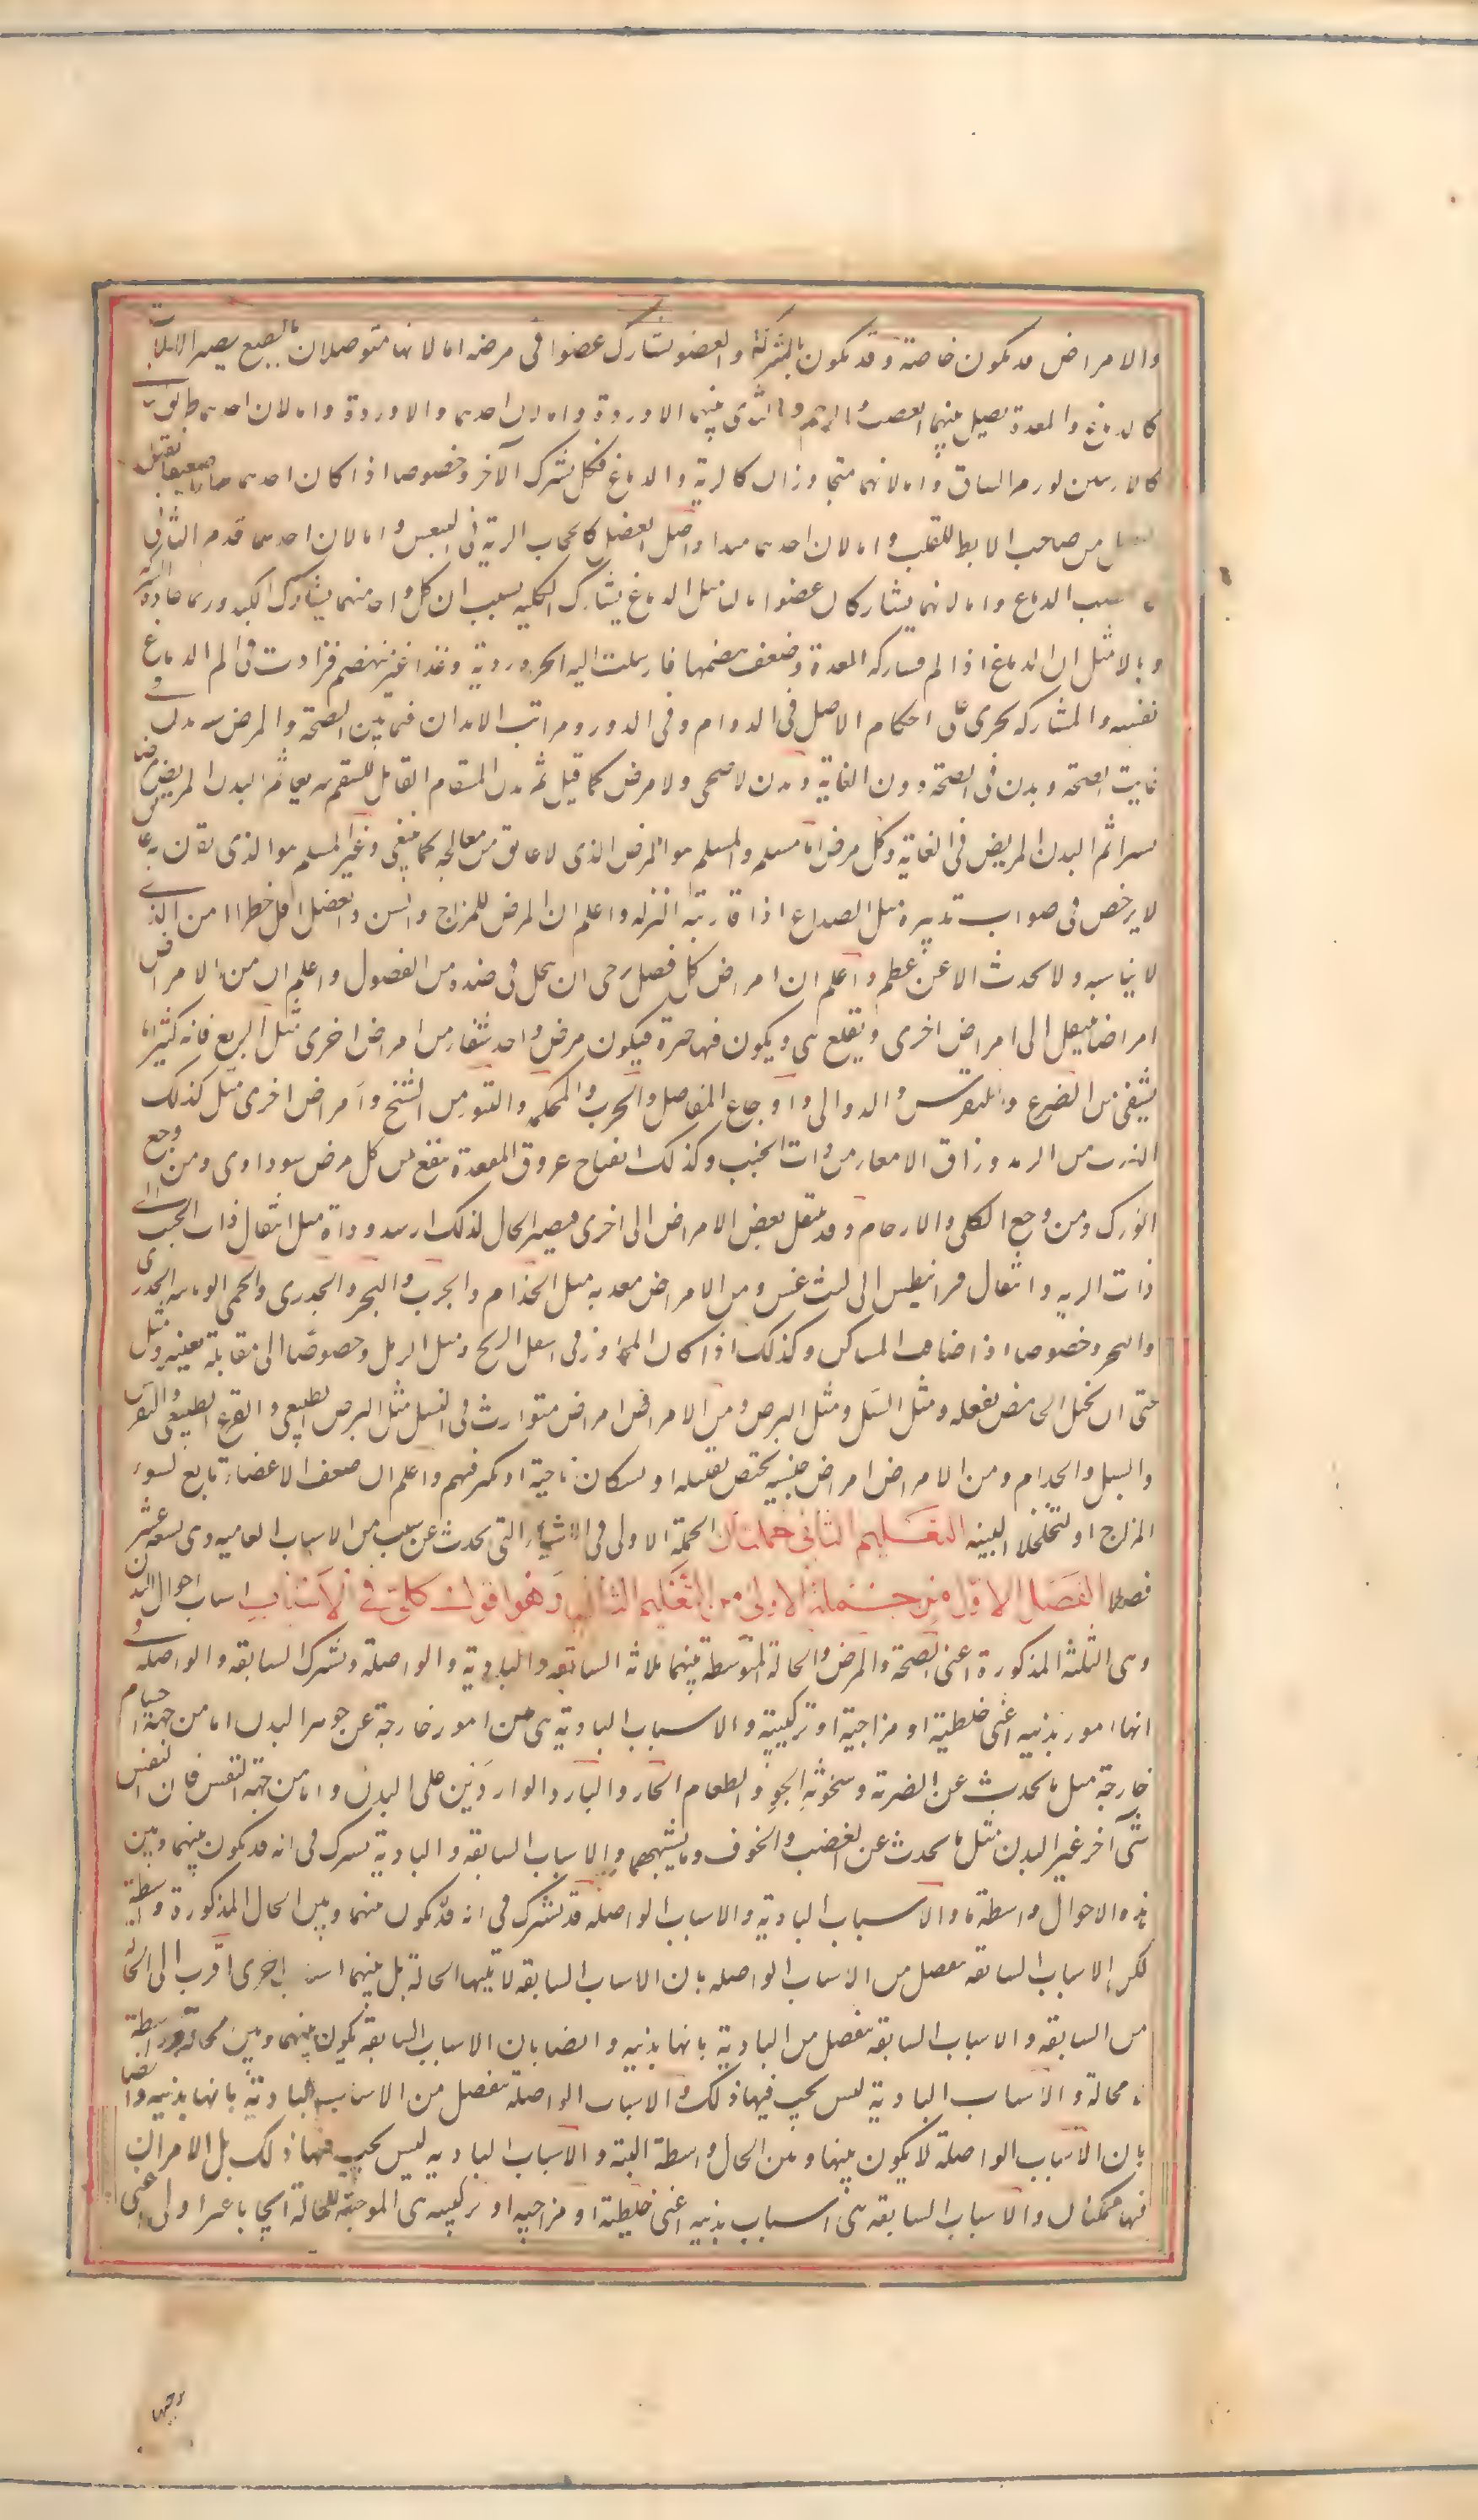 والامراض قد يكون خاصة وقد يكون بالشركة والعضو يشارك عضوا فى مرضه اما لانهما متوصلان بالطبع بصيرالالات
كالدماغ والمعدة يصل بينهما العصب والرحم والثدى بينهما الاوردة واما لان احدهما طريق
كالاربيتين لورم الساق واما لانهما متجاوران كالرية والدماغ فكل يشرك الآخر وخصوصا اذا كان احدهما ضعيفا يقبل
من صاحبه الابط للقلب واما لان احدهما مبدا واصل لفعل كالحجاب الرية فى التنفس واما لان احدهما
الدماغ واما لانهما يشاركان عضوا ثالثا مثل الدماغ يشارك الكليه بسبب ان كل واحد منهما يشارك الكبد وربما عادت
وبالا مثل ان الدماغ اذا الم فشاركه المعدة وضعف هضمها فارسلت اليه ابخرة ردية وغذا غير منهضم فزادت فى الم الدماغ
نفسه والمشاركه يجرى على احكام الاصل فى الدوام وفى الدور ومراتب الابدان فيما بين الصحة والمرض ستة بدن
غايت الصحة وبدن فى الصحة دون الغاية وبدن لا صحى ولا مرض كما قيل ثم بدن المسقام القابل للسقم سريعا ثم البدن المريض مرضا
يسيرا ثم البدن المريض فى الغاية وكل مرض اما مسلم والمسلم هو المرض الذى لا عايق من معالجه كما ينبغى وغير المسلم هو الذى يقترن به
لا يرخص فى صواب تدبيره مثل الصداع اذا قارنته النزله واعلم ان المرض للمزاج والسن والفصل اقل خطرا من الذى
لا يناسبه ولا يحدث الا عن عظم واعلم ان امراض كل فصل يرجى ان ينحل فى ضده من الفصول واعلم ان من الامراض
امراضا ينتقل الى امراض اخرى ويقلع هى ويكون فيها خيرة فيكون مرض واحد شفا من امراض اخرى مثل الربع فانه كثيرا ما
يشفى من الصرع والنقرس والدوالى واوجاع المفاصل والجرب والحكه والبثور من التشنج وامراض اخرى مثل كذلك
الذرب من الرمد وزلق الامعا من ذات الجنب وكذلك انفتاح عروق المقعدة ينفع من كل مرض سوداوى ومن وجع
الورك ومن وجع الكلى والارحام وقد ينتقل بعض الامراض الى اخرى فيصير الحال لذلك اردء ودداة مثل انتقال ذات الجنب الى
ذات الريه وانتقال قرانيطس الى ليثرغس ومن الامراض معديه مثل الجذام والجرب والبخر والجدرى والحمى الوبائيه الجدرى
والبخر وخصوصا اذا ضاقت المساكن وكذلك اذا كان المجاور فى اسفل الريح ومثل الرمد وخصوصا الى مقابلة بعينه ومثل
حتى ان تخيل الحامض يفعله ومثل السل ومثل البرص ومن الامراض امراض متوارث فى النسل مثل البرص الطبيعى والقرع الطبيعى والنقرس
والسل والجذام ومن الامراض امراض جنسيه يختص بقبيله او بسكان ناحية او يكثر فيهم واعلم ان ضعف الاعضاء تابع لسوء
المزاج او تخلخل البنيه التعليم الثانى جملتان الجملة الاولى فى الاشياء التى يحدث عن سبب من الاسباب العاميه وهى تسعة عشر
فصلا الفصل الاول من جملة الاولى من التعليم الثانى وهو اقول كلى فى الاسباب اسباب احوال البدن
وهى الثلثة المذكورة اعنى الصحة والمرض والحالة المتوسطة بينهما ثلاثه السابقه والبادية والواصلة وتشترك السابقه والواصله
انها امور بدنيه اعنى خلطية او مزاجية او تركيبية والاسباب البادية هى من امور خارجة عن جوهر البدن اما من جهة اجسام
خارجة مثل ما يحدث عن الضربة وسخونة الجو والطعام الحار والبارد الواردَين على البدن واما من جهة النفس فان النفس
شى آخر غير البدن مثل ما يحدث عن الغضب والخوف وما يشبههما والاسباب السابقه والبادية يشترك فى انه قد يكون بينهما وبين
هذه الاحوال واسطة ما والاسباب البادية والاسباب الواصله قد تشترك فى انه قد يكون بينهما وبين الحال المذكورة واسطة
لكن الاسباب السابقه ينفصل من الاسباب الواصله بان الاسباب السابقه لا يليها الحالة بل بينهما اسباب اخرى اقرب الى الحالة
من السابقه والاسباب السابقه ينفصل من البادية بانها بدنيه وايضا بان الاسباب السابقه يكون بينهما وبين الحالة واسطة
لا محالة والاسباب البادية ليس يجب فيها ذلك والاسباب الواصلة ينفصل من الاسباب البادية بانها بدنيه وايضا
بان الاسباب الواصلة لا يكون بينها وبين الحال واسطة البتة والاسباب الباديه ليس يجب فيها ذلك بل الامران
فيها ممكنان والاسباب السابقه هى اسباب بدنيه اعنى خلطية او مزاجيه او تركيبيه هى الموجبة للحالة ايجابا غير اولى اعنى